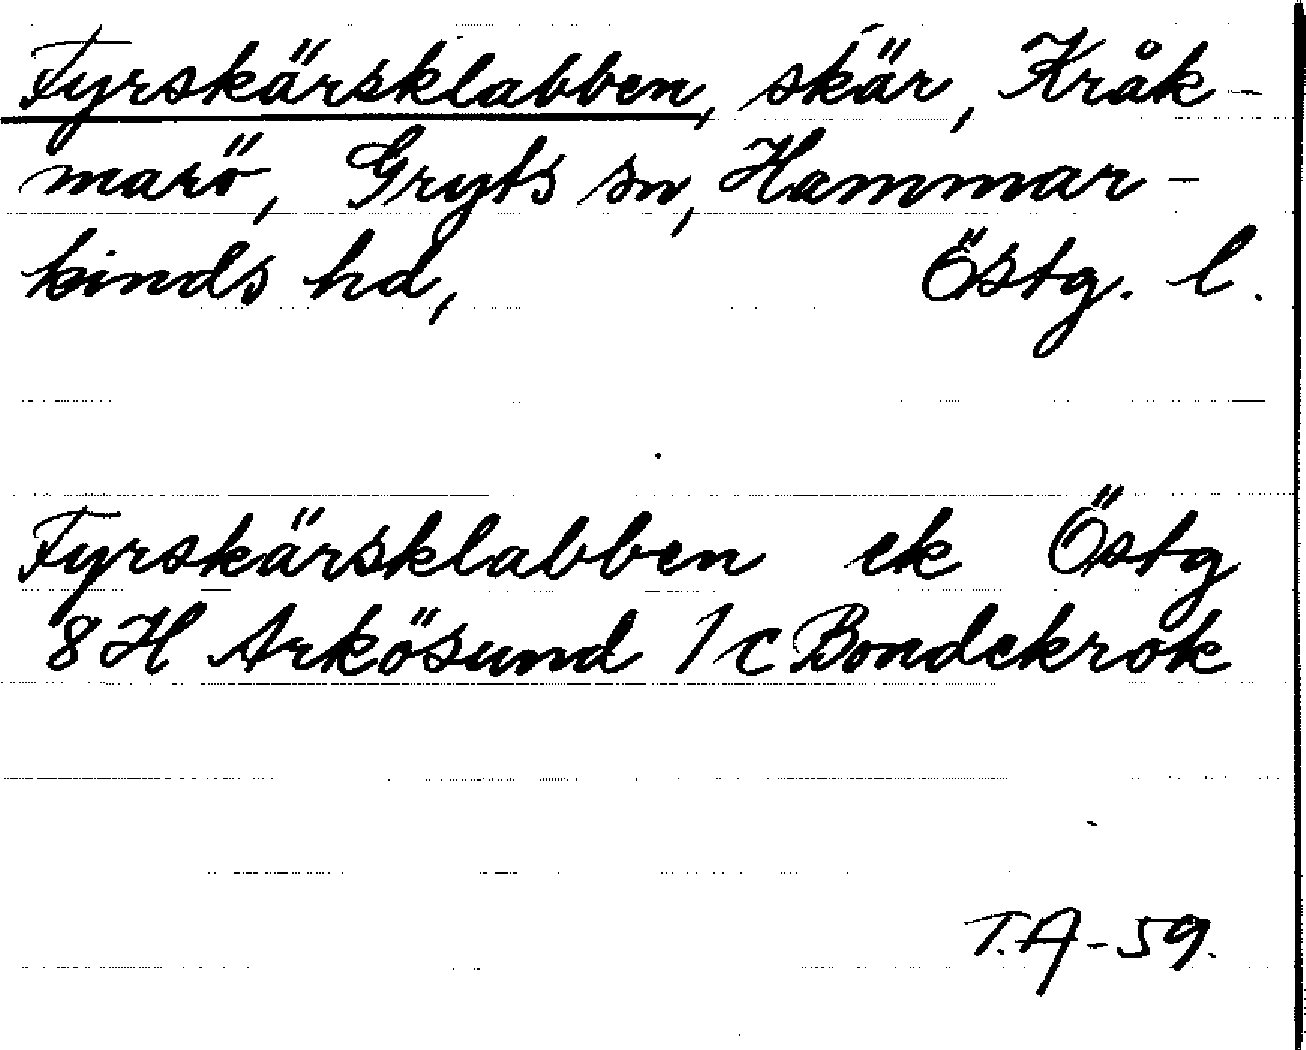 Fyrskärsklabben, skär, Kråk-
marö, Gryts sn, Hammar-
kinds hd, Östg. l.
Fyrskärsklabben ek Östg
8H Arkösund 1c Bondekrok
T.A-59.